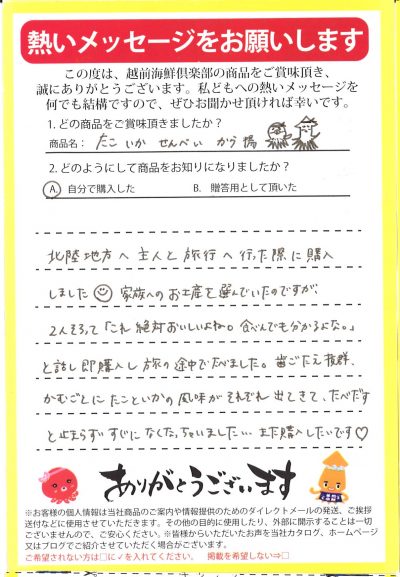 熱いメッセージをお願いします
この度は、越前海鮮倶楽部の商品をご賞味頂き、
誠にありがとうございます。私どもへの熱いメッセージを
何でも結構ですので、ぜひお聞かせ頂ければ幸いです。
1. どの商品をご賞味頂きましたか？
商品名： たこ いか せんべい かう場
2. どのようにして商品をお知りになりましたか？
A. 自分で購入した B. 贈答用として頂いた
北陸地方へ主人と旅行へ行った際に購入
しました 家族へのお土産を選んでいたのですが、
2人そろって「これ絶対おいしいよね。食べんでも分かるよな。」
と話し即購入し旅の途中でたべました。歯ごたえ抜群、
かむごとにたこといかの風味がそれぞれ出てきて、たべだす
と止まらずすぐになくなっちゃいました… また購入したいです♡
ありがとうございます
※お客様の個人情報は当社商品のご案内や情報提供のためのダイレクトメールの発送、ご挨拶
送付などに使用させていただきます。その他の目的に使用したり、外部に開示することは一切
ございませんので、ご安心ください。※皆様からいただいたお声を当社カタログ、ホームページ
又はブログでご紹介させていただく場合がございます。
ご希望されない方は□に✓を入れてください。 掲載を希望しない⇒□